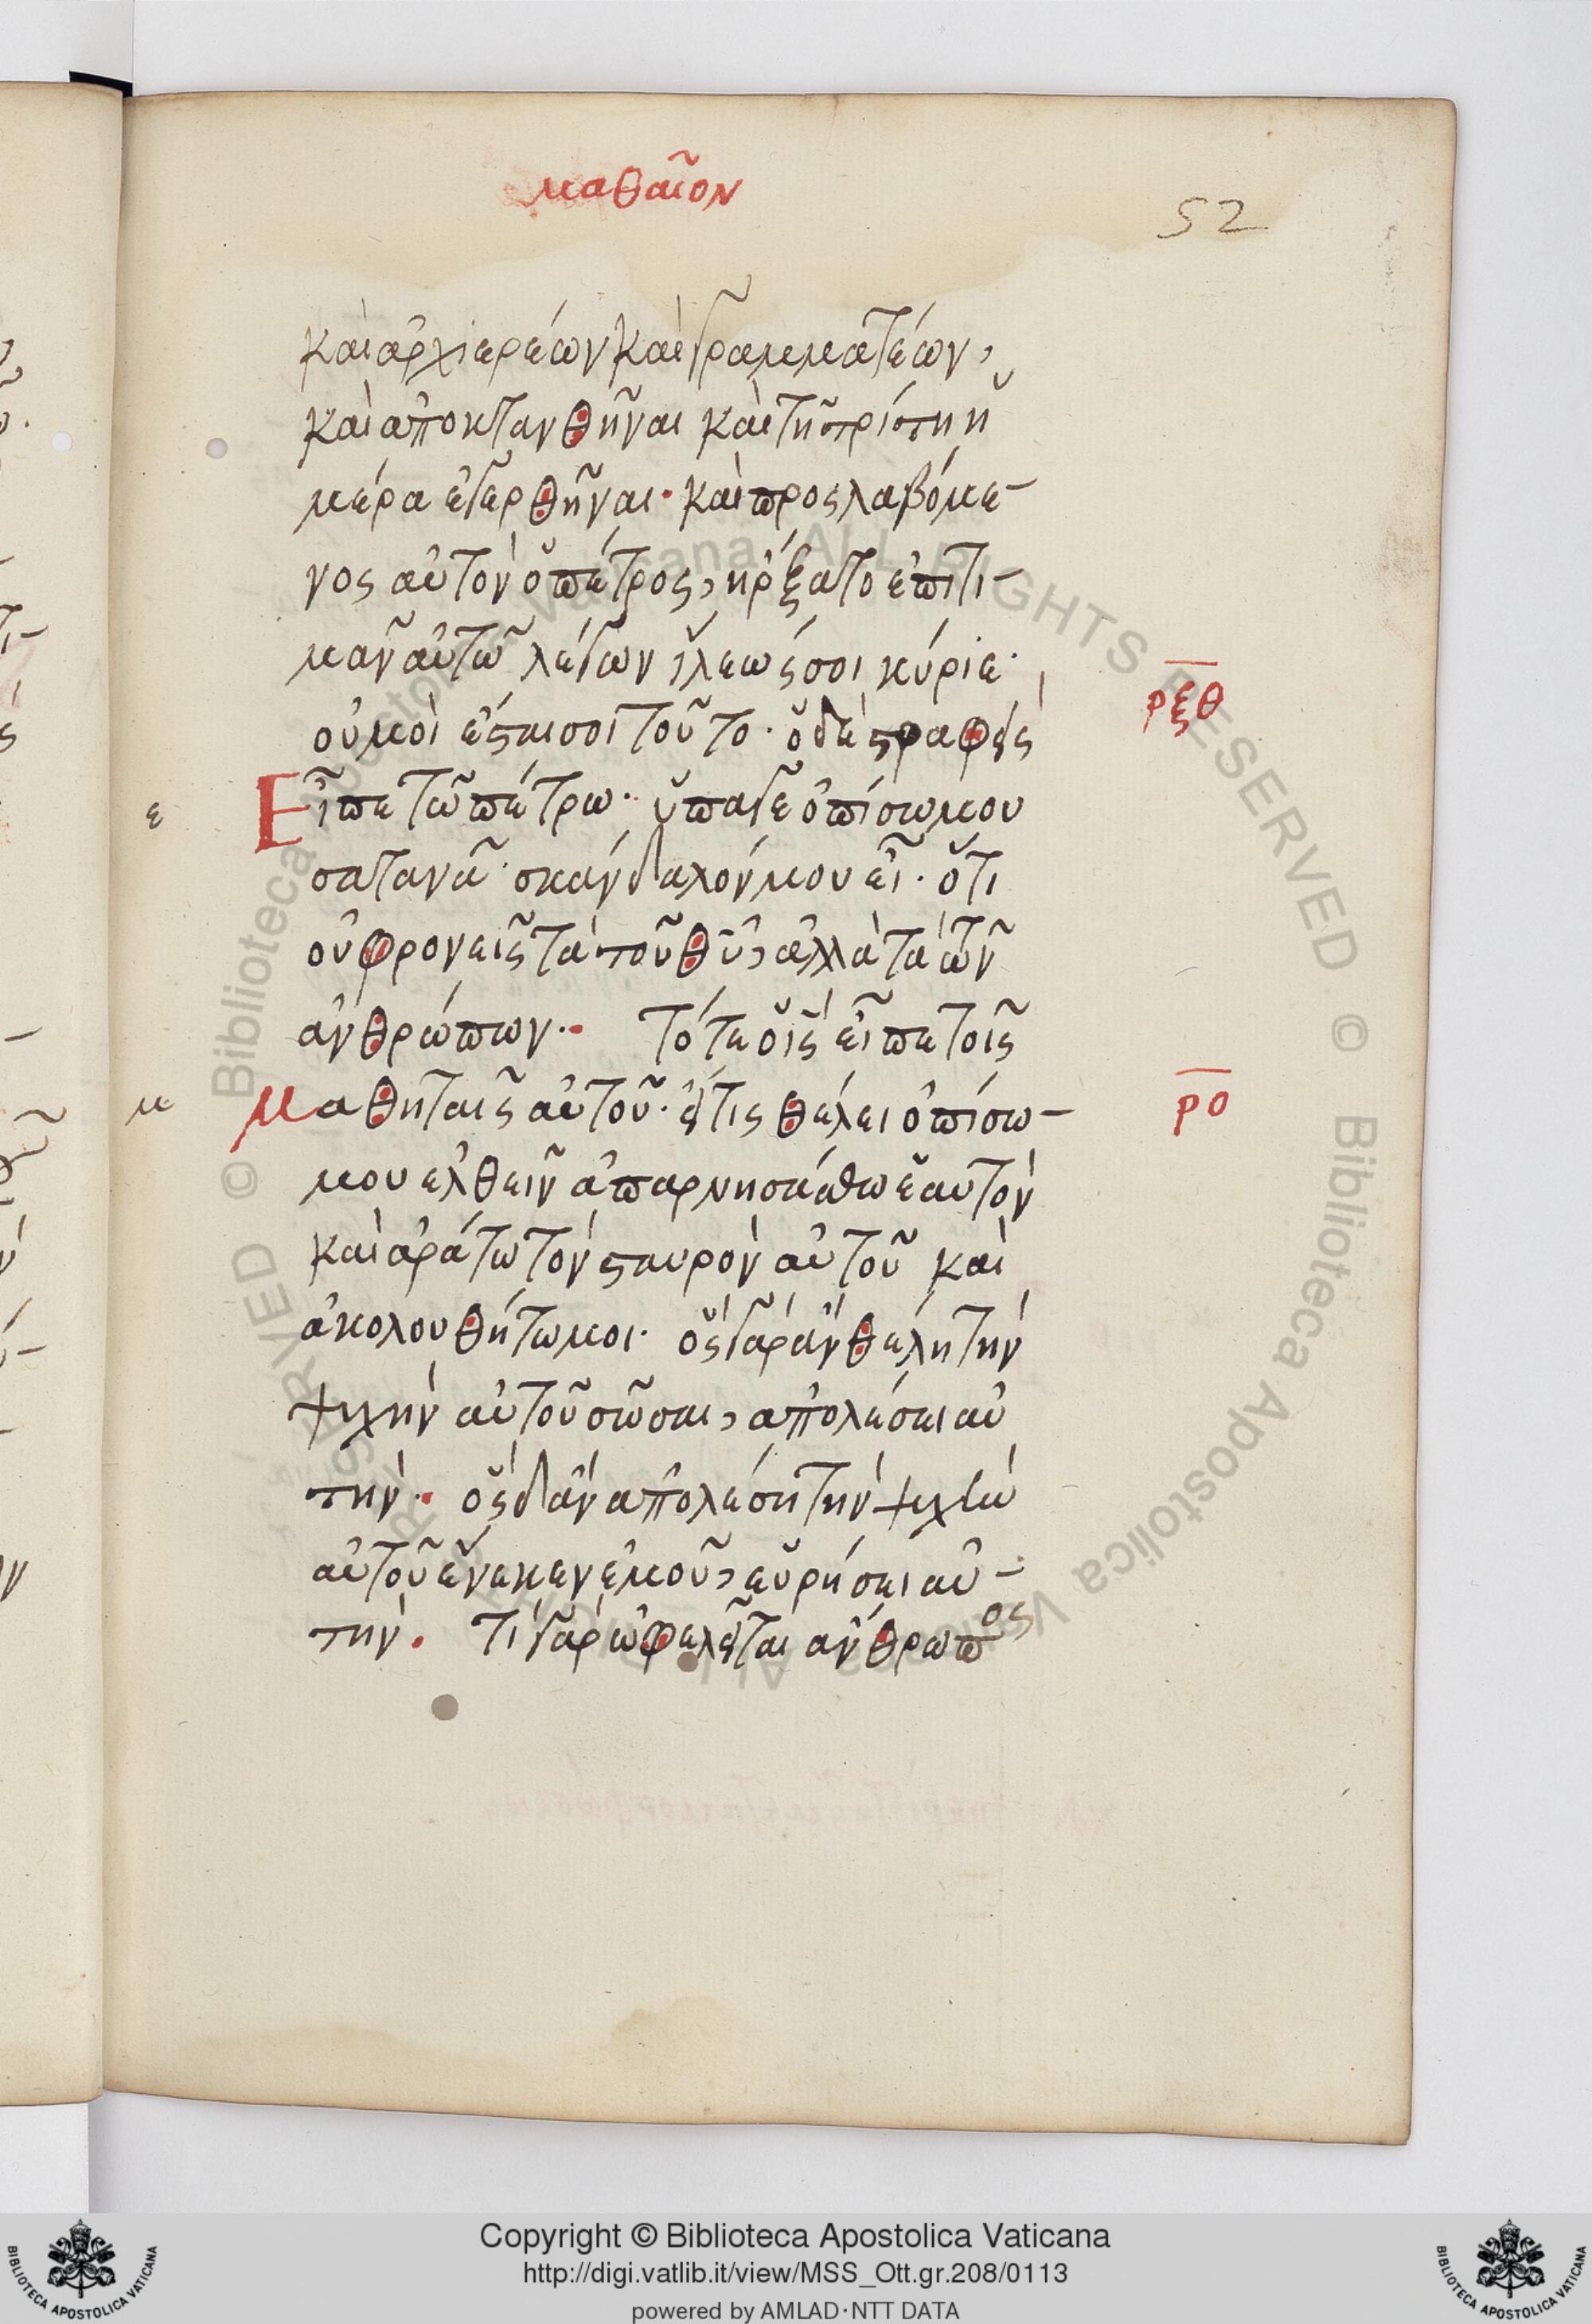 μαθαῖον
52
καὶ ἀρχιερέων καὶ γραμματέων,
καὶ ἀποκτανθῆναι καὶ τῆ τρίτη ἡ
μέρα ἐγερθῆναι· καὶ προςλαβόμε-
νος αὐτὸν ὁ πέτρος, ἠρξατο ἐπιτι-
μᾶν αὐτῶ λέγων ἵλεώς σοι κύριε·
οὐ μοὶ ἔσται σοι τοῦτο· ὁ δὲ στραφεὶς
ρξθ
ε
Εἶπε τῶ πέτρω· ὕπαγε ὀπίσω μου
σατανᾶ· σκάνδαλόν μου εἶ· ὅτι
οὐ φρονεῖς τὰ τοῦ θυ, ἀλλὰ τὰ τῶν
ἀνθρώπων·· Τότε ὁ ις εἶπε τοῖς
μ
Μαθηταῖς αὐτοῦ· εἴ τις θέλει ὀπίσω-
ρο
μου ἐλθεῖν ἀπαρνησάσθω ἑαυτὸν
καὶ ἀράτω τὸν σταυρὸν αὐτοῦ καὶ
ἀκολουθήτω μοι· ὃς γὰρ ἂν θέλη τὴν
ψυχὴν αὐτοῦ σῶσαι, ἀπολέσει αὐ
τήν·· ὃς δ' ἂν ἀπολέση τὴν ψυχὴν
αὐτοῦ ἕνεκεν ἐμοῦ, εὑρήσει αὐ-
τὴν. Τί γὰρ ὠφελεῖται ἄνθρωπος
Copyright © Biblioteca Apostolica Vaticana
http://digi.vatlib.it/view/MSS_Ott.gr.208/0113
powered by AMLAD·NTT DATA
BIBLIOTECA APOSTOLICA VATICANA
BIBLIOTECA APOSTOLICA VATICANA